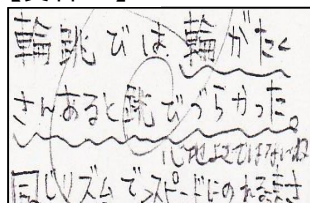 輪跳びは輪がたく
さんあると跳びづらかった。
心地よさではない
同じリズムでスピードにのれる